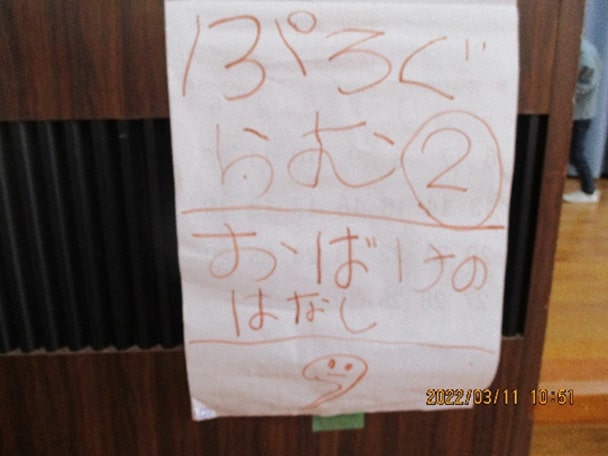 ぷろぐ
らむ②
おばけの
はなし
2022/03/11 10:51